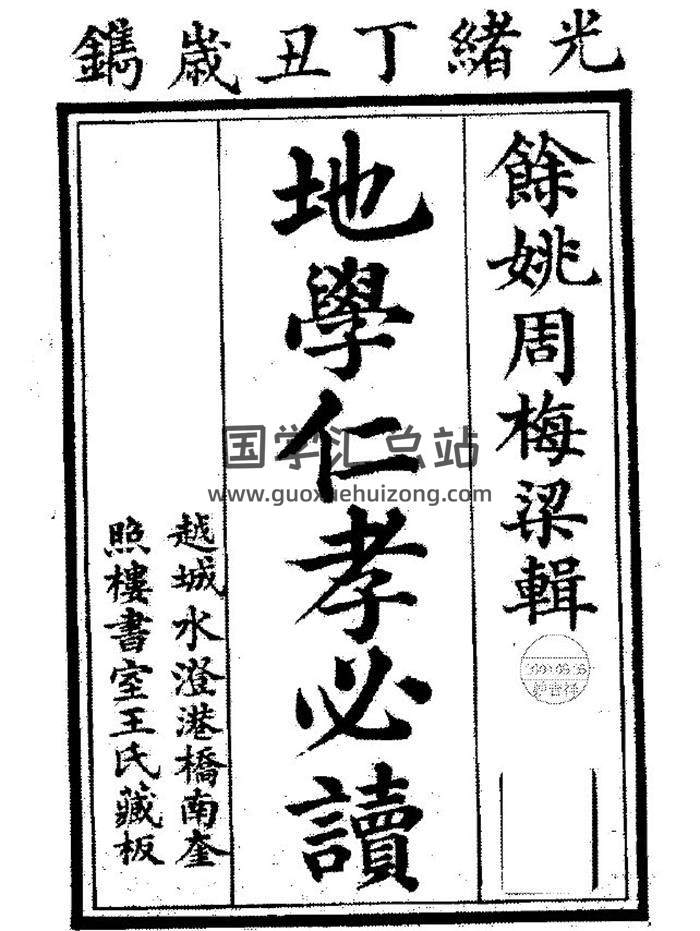 光緒丁丑歲鐫
餘姚周梅梁輯
地學仁孝必讀
越城水澄港橋南奎
照樓書室王氏藏板
国学汇总站
www.guoxuehuizong.com